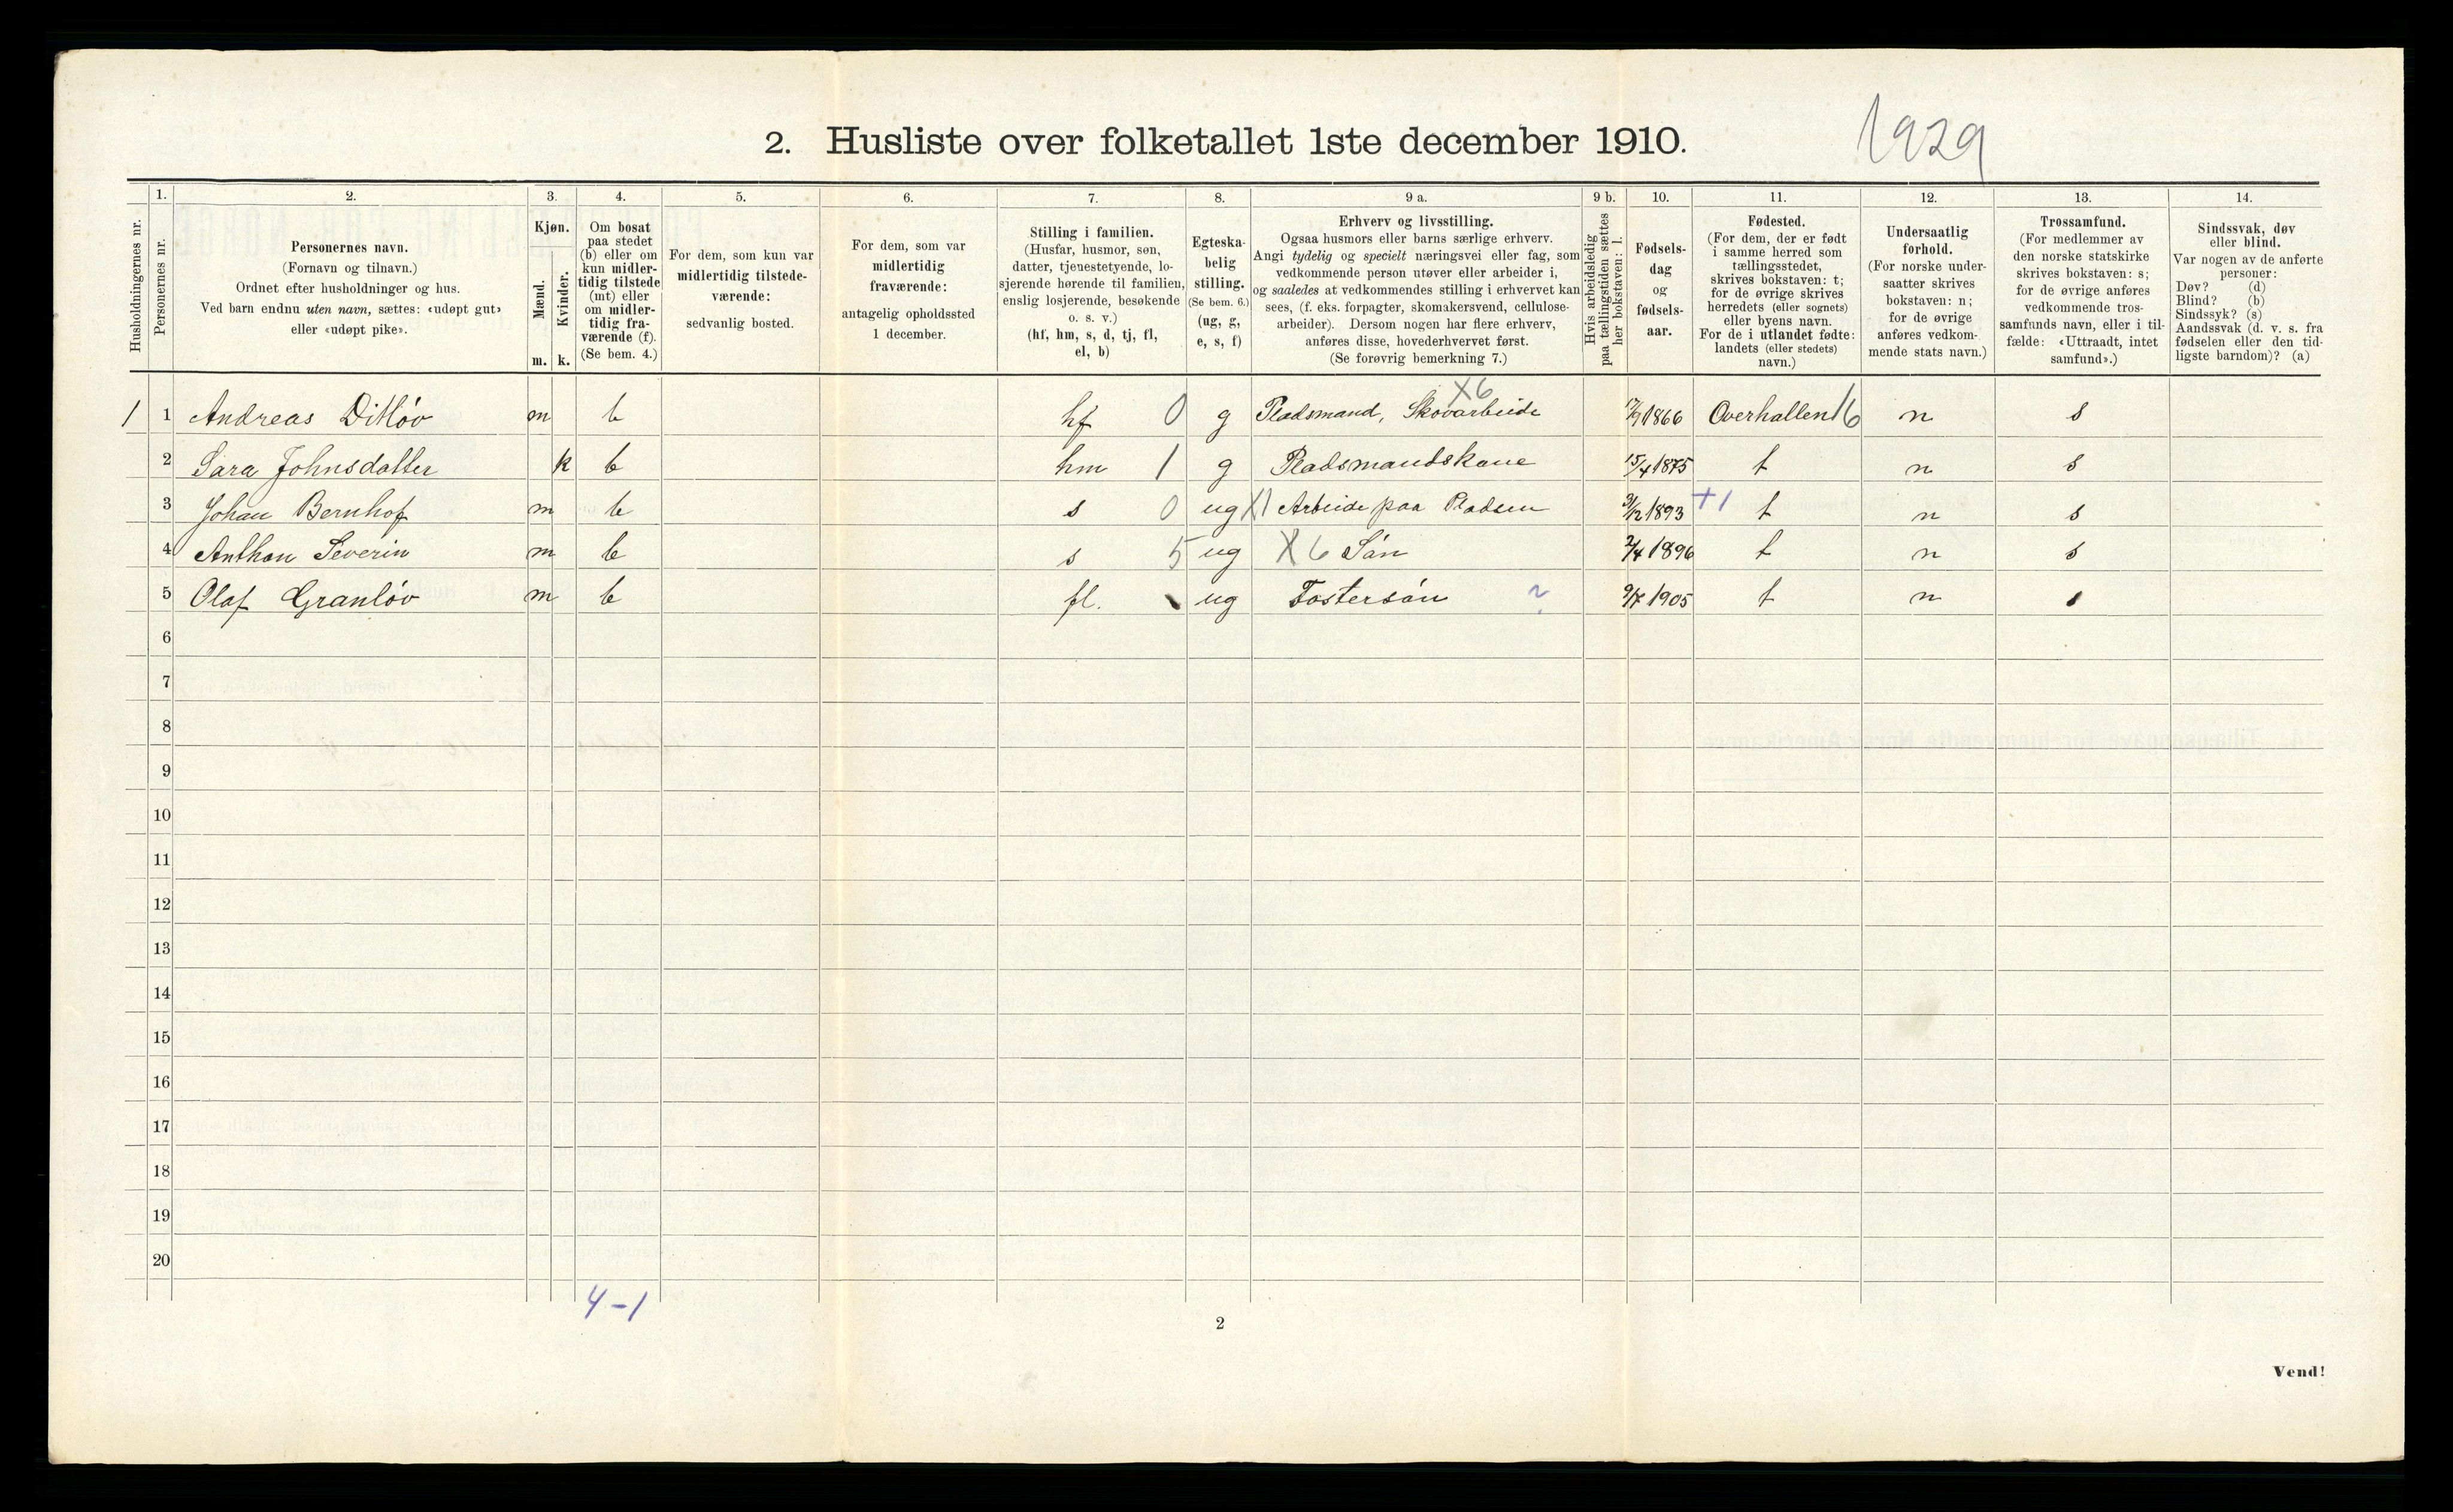 2. Husliste over folketallet 1ste december 1910.
1929
Husholdningernes nr.
1.
Personernes nr.
2.
Personernes navn.
(Fornavn og tilnavn.)
Ordnet efter husholdninger og hus.
Ved barn endnu uten navn, sættes: «udøpt gut»
eller «udøpt pike».
3.
Kjøn.
Mænd.
m.
Kvinder.
k.
4.
Om bosat
paa stedet
(b) eller om
kun midler-
tidig tilstede
(mt) eller
om midler-
tidig fra-
værende (f).
(Se bem. 4.)
5.
For dem, som kun var
midlertidig tilstede-
værende:
sedvanlig bosted.
6.
For dem, som var
midlertidig
fraværende:
antagelig opholdssted
1 december.
7.
Stilling i familien.
(Husfar, husmor, søn,
datter, tjenestetyende, lo-
sjerende hørende til familien,
enslig losjerende, besøkende
o. s. v.)
(hf, hm, s, d, tj, fl,
el, b)
8.
Egteska-
belig
stilling.
(Se bem. 6.)
(ug, g,
e, s, f)
9 a.
Erhverv og livsstilling.
Ogsaa husmors eller barns særlige erhverv.
Angi tydelig og specielt næringsvei eller fag, som
vedkommende person utøver eller arbeider i,
og saaledes at vedkommendes stilling i erhvervet kan
sees, (f. eks. forpagter, skomakersvend, cellulose-
arbeider). Dersom nogen har flere erhverv,
anføres disse, hovederhvervet først.
(Se forøvrig bemerkning 7.)
9 b.
Hvis arbeidsledig
paa tællingstiden sættes
her bokstaven: l.
10.
Fødsels-
dag
og
fødsels-
aar.
11.
Fødested.
(For dem, der er født
i samme herred som
tællingsstedet,
skrives bokstaven: t;
for de øvrige skrives
herredets (eller sognets)
eller byens navn.
For de i utlandet fødte:
landets (eller stedets)
navn.)
12.
Undersaatlig
forhold.
(For norske under-
saatter skrives
bokstaven: n;
for de øvrige
anføres vedkom-
mende stats navn.)
13.
Trossamfund.
(For medlemmer av
den norske statskirke
skrives bokstaven: s;
for de øvrige anføres
vedkommende tros-
samfunds navn, eller i til-
fælde: «Uttraadt, intet
samfund».)
14.
Sindssvak, døv
eller blind.
Var nogen av de anførte
personer:
Døv? (d)
Blind? (b)
Sindssyk? (s)
Aandssvak (d. v. s. fra
fødselen eller den tid-
ligste barndom)? (a)
X6
1 1 Andreas Ditløv m b hf 0 g Pladsmand, Skovarbeide 17/9 1866 Overhallen 16 n s
2 Sara Johnsdatter k b hm 1 g Pladsmandskone 15/4 1875 t n s
3 Johan Bernhof m b s 0 ug X1 Arbeide paa Pladsen 3/12 1893 +1 t n s
4 Anthon Severin m b s 5 ug X6 Søn 2/4 1896 t n s
5 Olaf Granløv m b fl. ug Fostersøn ? 9/7 1905 t n s
6
7
8
9
10
11
12
13
14
15
16
17
18
19
20
4-1
2
Vend!